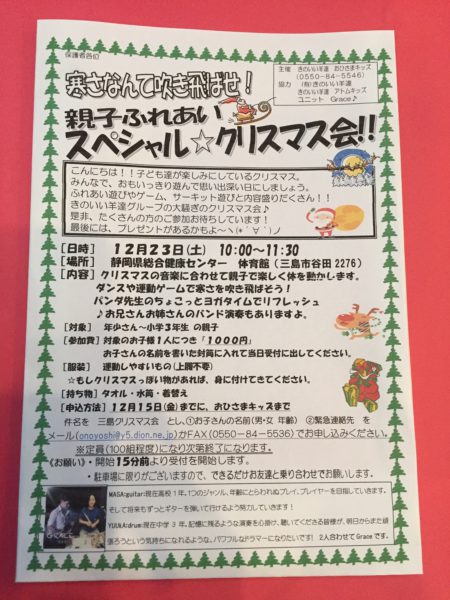 保護者各位
主催　きのいい羊達　おひさまキッズ
(0550-84-5546)
協力　(有)きのいい羊達
きのいい羊達　アトムキッズ
ユニット　Grace♪
寒さなんて吹き飛ばせ！
親子ふれあい
スペシャル☆クリスマス会!!
こんにちは！！子ども達が楽しみにしているクリスマス。
みんなで、おもいっきり遊んで思い出深い日にしましょう。
ふれあい遊びやゲーム、サーキット遊びと内容盛りだくさん！！
きのいい羊達グループの大騒ぎのクリスマス会♪
是非、たくさんの方のご参加お待ちしています！
最後には、プレゼントがあるかもよ～ヽ(*´∀｀)ノ
【日時】　１２月２３日(土)　10:00～11:30
【場所】　静岡県総合健康センター　体育館（三島市谷田 2276）
【内容】クリスマスの音楽に合わせて親子で楽しく体を動かします。
ダンスや運動ゲームで寒さを吹き飛ばそう！
パンダ先生のちょこっとヨガタイムでリフレッシュ
♪お兄さんお姉さんのバンド演奏もありますよ。
【対象】　年少さん～小学３年生 の親子
【参加費】対象のお子様１人につき「１０００円」
お子さんの名前を書いた封筒に入れて当日受付に出してください。
【服装】　運動しやすいもの(上履不要)
☆もしクリスマスっぽい物があれば、身に付けてきてください。
【持ち物】タオル・水筒・着替え
【申込方法】１２月１５日(金)までに、おひさまキッズまで
件名を　三島クリスマス会　とし、①お子さんの名前(男・女 年齢)　②緊急連絡先　を
メール(onoyoshi@y5.dion.ne.jp)かFAX(0550-84-5536)でお申し込みください。
※定員(100組程度)になり次第終了になります。
《お願い》・開始15分前より受付を開始します。
・駐車場に限りがございますので、できるだけお友達と乗り合わせてお願いします。
MASA:guitar:現在高校１年。１つのジャンル、年齢にとらわれぬプレイ、プレイヤーを目指していきます。
そして将来もずっとギターを弾いて行けるよう努力していきます！
YOUNA:drum:現在中学３年。記憶に残るような演奏を心掛け、聴いてくださる皆様が、明日からまた頑
張ろうという気持ちになれるような、パワフルなドラマーになりたいです！　２人合わせてGraceです。
GRACE